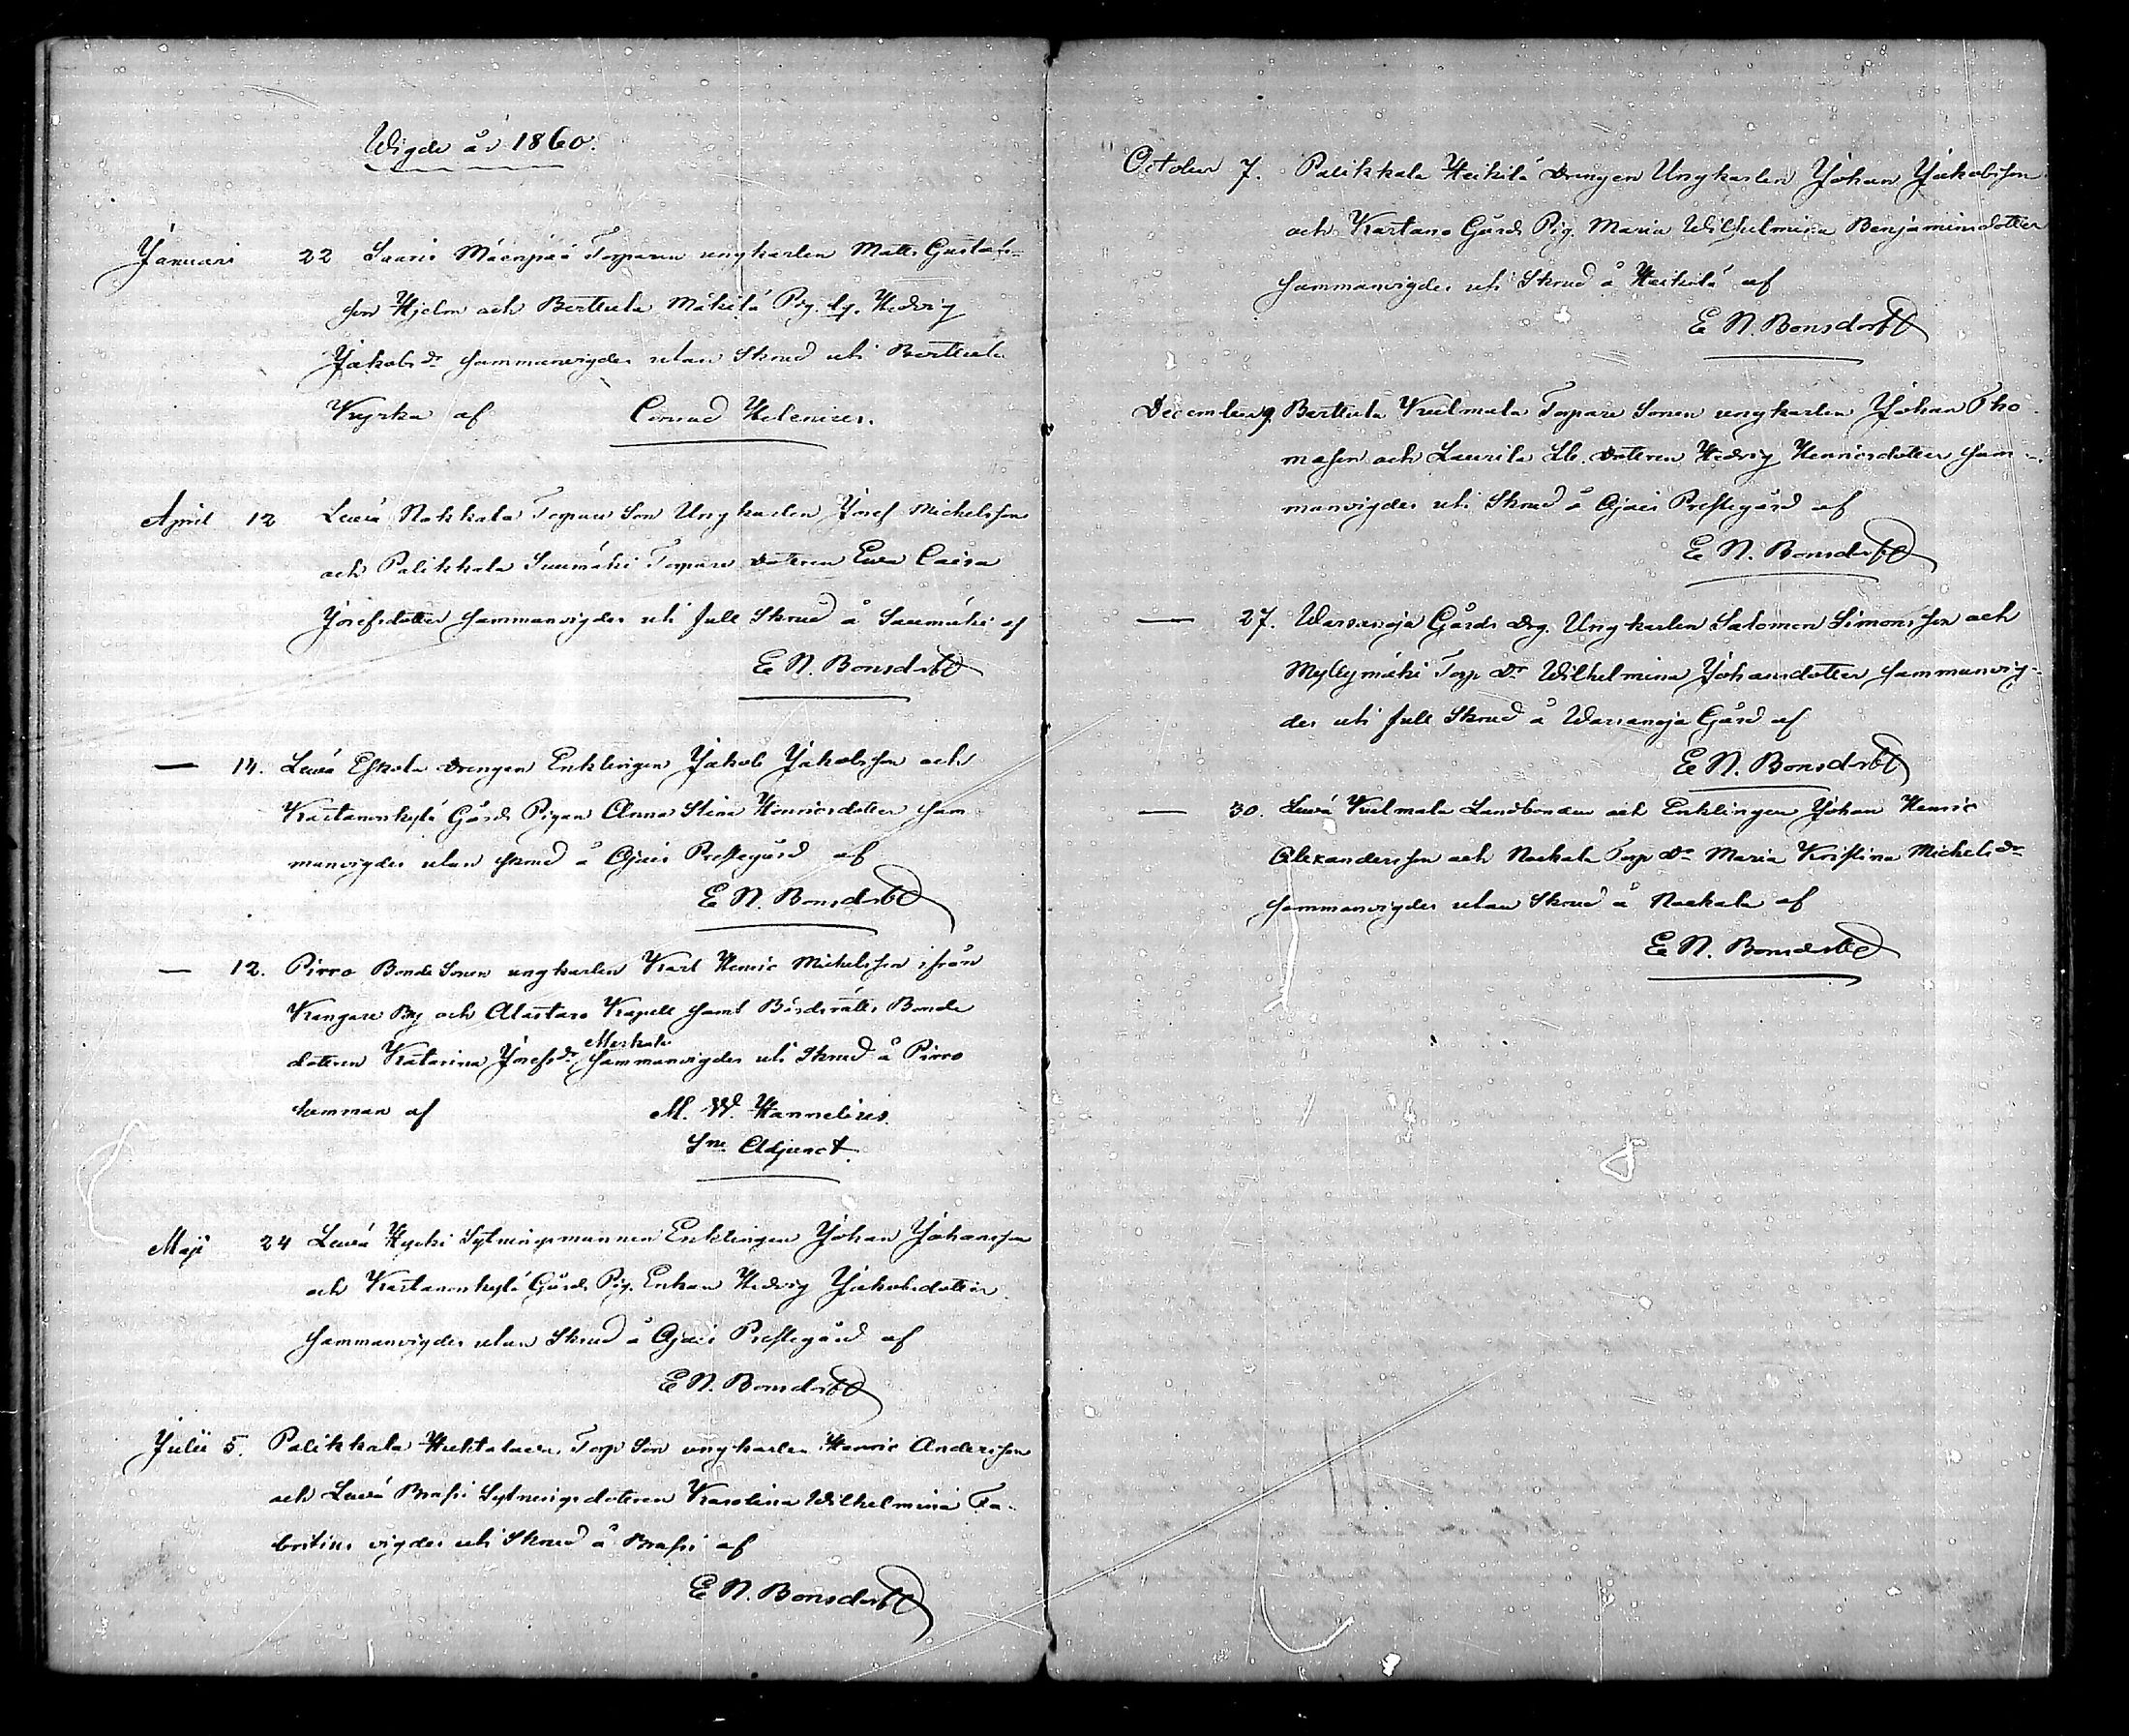 Wigde år 1860.
Januari 22 Saaris Mäenpää Torparen ungkarlen Matts Gustafs-
son Hjelm och Berttula Mäkilä Pig. Hedvig
Jakobsdr sammanvigdes utan Skrud uti Berttula
Kyrka af Conrad Helenius.
April 12 Leuvä Nokkala Torpare Son Ungkarlen Josef Michelsson
och Palikkala Suumäki Torpare dotteren Ewa Caisa
Josefsdotter sammanvigdes uti full Skrud å Suumäki af
E N. Bonsdorff
— 14. Leuvä Eskola Drengen Enklingen Jakob Jakobsson och
Kartanonkylä Gårds Pigan Anna Stina Henricsdotter sam
manvigdes utan skrud å Ojais Prestegård af
E N. Bonsdorff
— 12. Pirro Bonde Sonen ungkarlen Karl Henric Michelsson ifrån
Kangare By och Alastaro Kapell samt Bördsrätts Bonde
dotteren Katarina Josefsdr sammanvigdes uti Skrud å Pirro
hemman af M. W. Hannelius.
Sne Adjunct.
Maji 24 Leuvä Hycki Sytningsmannen Enklingen Johan Johansson
och Kartanonkylä Gårds Pig. Enkan Hedvig Jakobsdotter
sammanvigdes utan Skrud å Ojais Prestegård af
E N. Bonsdorff
Julii 5. Palikkala Huhtalavu Torp Son ungkarlen Henric Andersson
och Leuvä Brassi Sytningsdotteren Karolina Wilhelmina Fa-
britius vigdes uti Skrud å Brassi af
E N. Bonsdorff
October 7. Palikkala Heikilä Drengen Ungkarlen Johan Jakobsson
och Kartano Gårds Pig. Maria Wilhelmina Benjaminsdotter
sammanvigdes uti Skrud å Heikilä af
E N. Bonsdorff
December 9. Berttula Kulmala Torpare Sonen ungkarlen Johan Tho
masson och Laurila dotteren Hedvig Henricsdotter sam-
manvigdes uti Skrud å Ojais Prestegård af
E N. Bonsdorff
— 27. Warsanoja Gårds Drg. Ungkarlen Salomon Simonsson och
Myllymäki Torp Dr Wilhelmina Johansdotter sammanvig-
des uti full Skrud å Warsanoja Gård af
E N. Bonsdorff
— 30. Leuvä Kulmala Landbonden och Enklingen Johan Henric
Alexandersson och Nockala Torp Dr Maria Kristina Michelsdr
sammanvigdes utan Skrud å Nockala af
E N. Bonsdorff